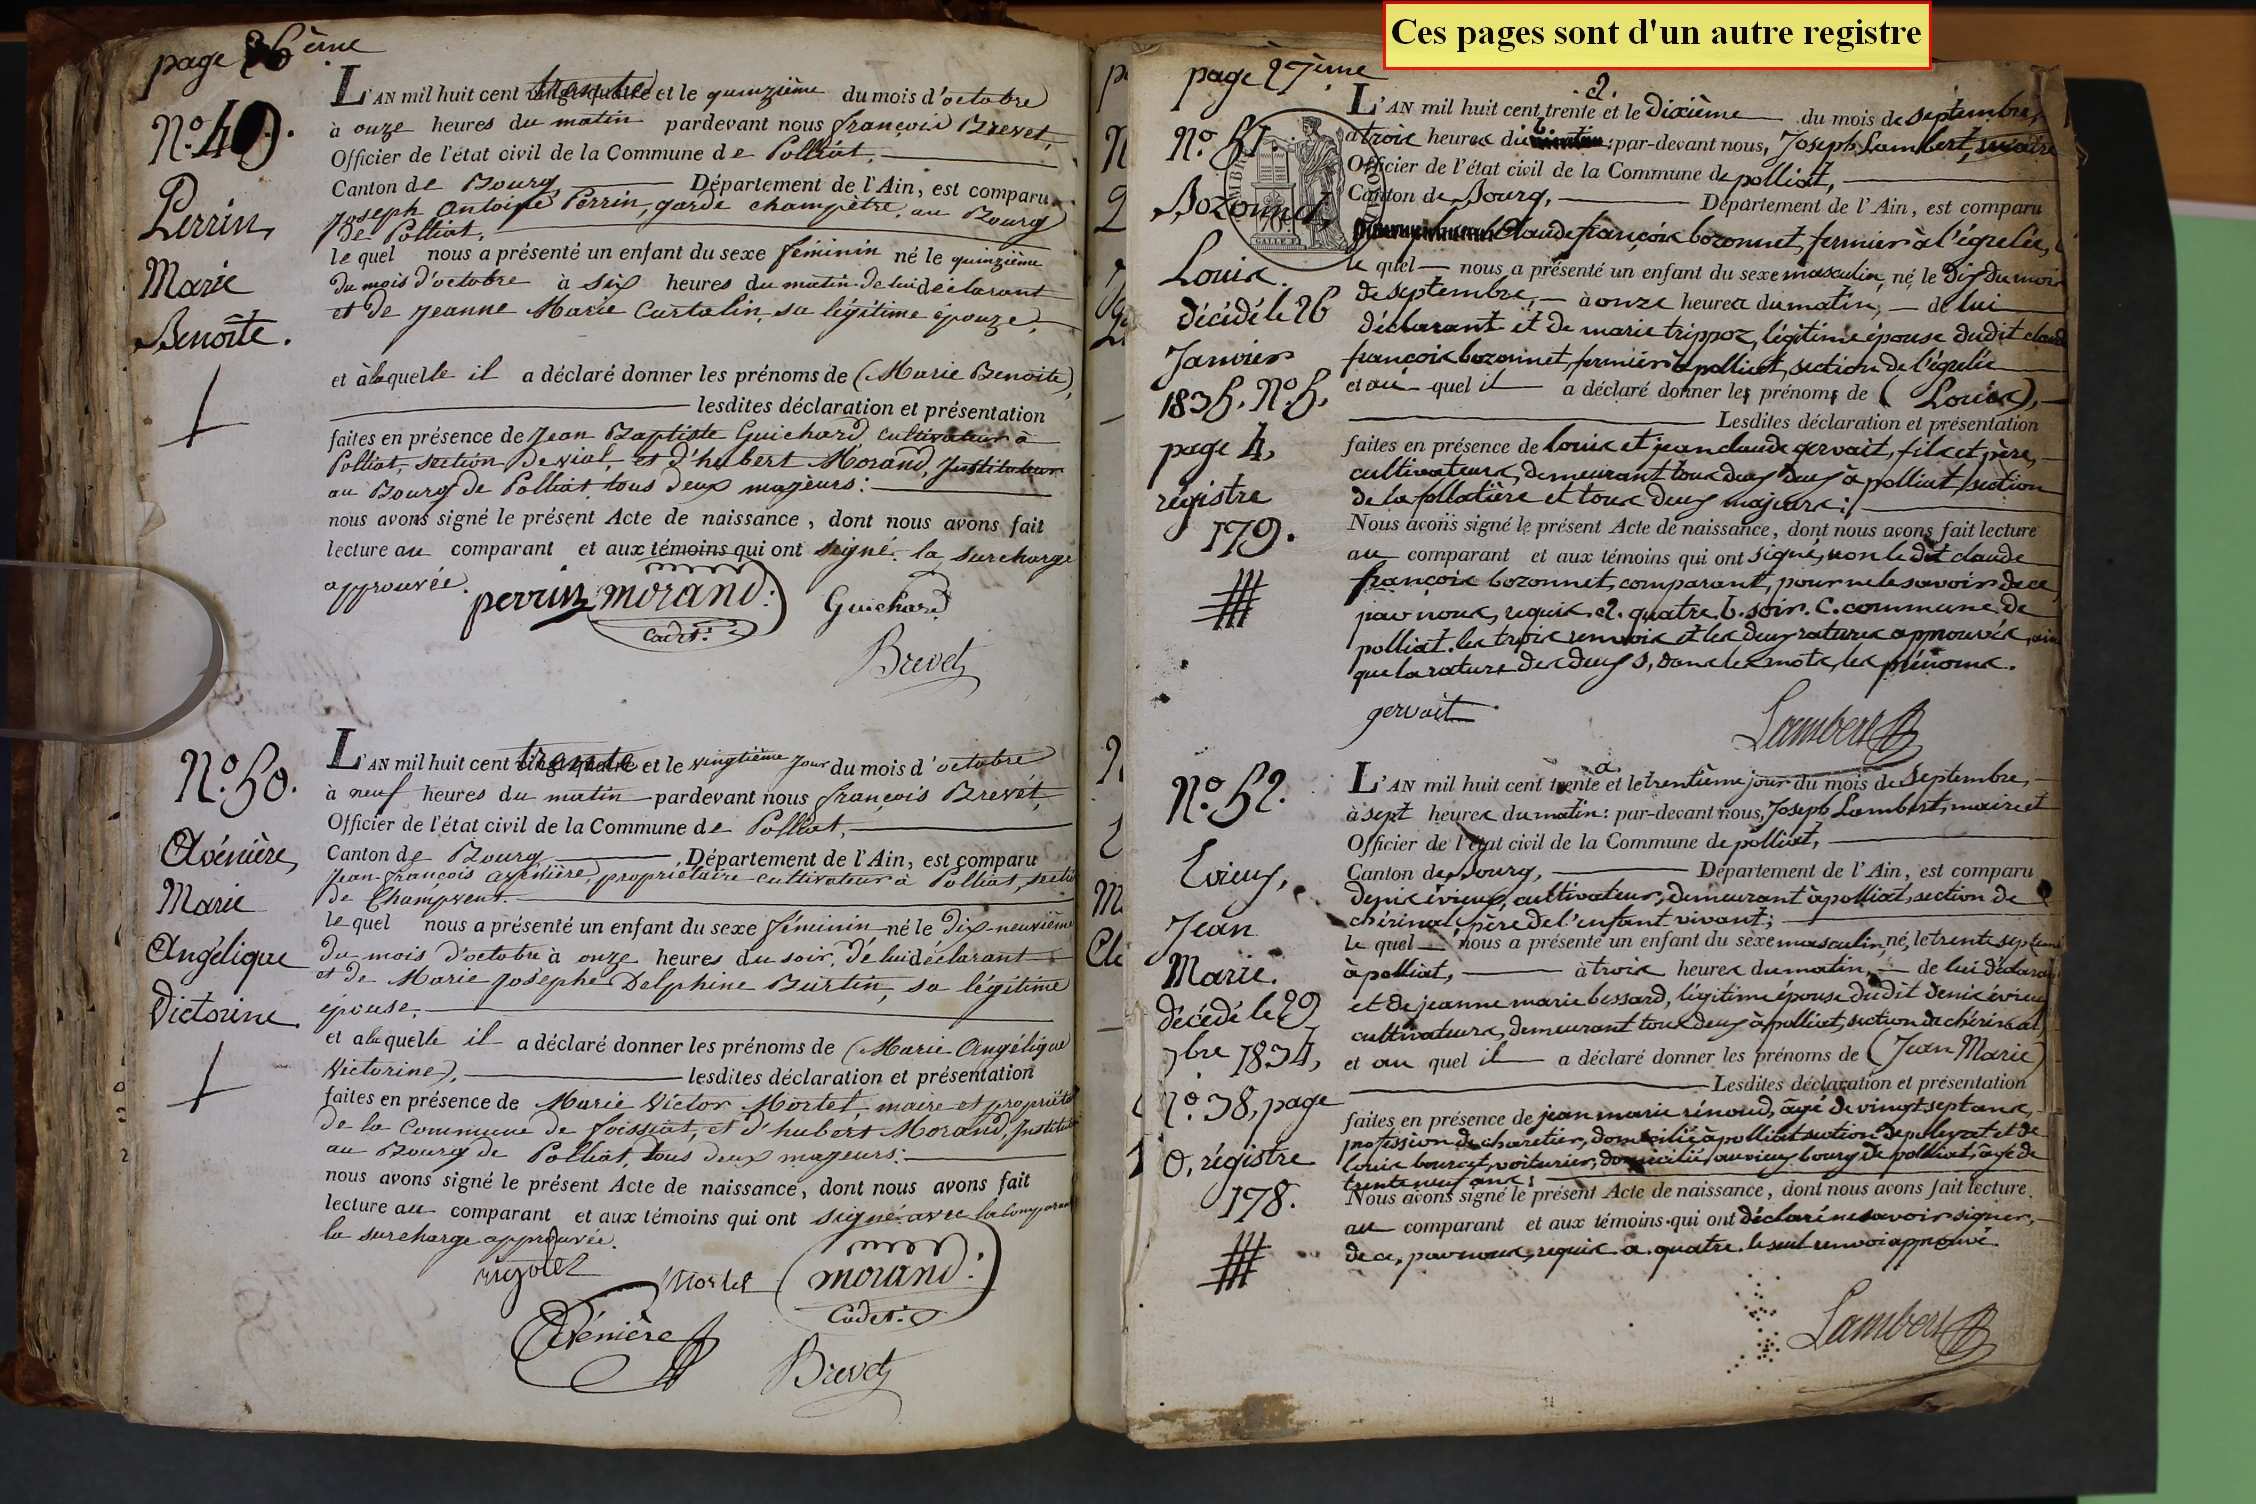 Ces pages sont d'un autre registre
page 26ème
N.º 49.
Perrin,
Marie
Benoîte.
L'AN mil huit cent trente et le quinzième du mois d'octobre
à onze heures du matin pardevant nous françois Brevet,
Officier de l'état civil de la Commune de Polliat,
Canton de Bourg, Département de l'Ain, est comparu
Joseph Antoine Perrin, garde champètre, au Bourg
de Polliat,
le quel nous a présenté un enfant du sexe féminin né le quinzième
du mois d'octobre à six heures du matin de lui déclarant
et de Jeanne Marie Curtalin, sa légitime épouze,
et à laquelle il a déclaré donner les prénoms de (Marie Benoite),
lesdites déclaration et présentation
faites en présence de Jean Baptiste Guichard, cultivateur à
Polliat, section de vial, et d'hubert Morand, Instituteur
au Bourg de Polliat, tous deux majeurs:
nous avons signé le présent Acte de naissance, dont nous avons fait
lecture au comparant et aux témoins qui ont signé. la surcharge
approuvée.
perrin morand Guichard
Cadet.
Brevet
N.º 50.
Avénière,
Marie
Angélique
Victorine.
L'AN mil huit cent trente et le vingtième jour du mois d'octobre
à neuf heures du matin pardevant nous françois Brevét,
Officier de l'état civil de la Commune de Polliat,
Canton de Bourg Département de l'Ain, est comparu
Jean-François Avenière, propriétaire cultivateur à Polliat, section
de Champvent.
le quel nous a présenté un enfant du sexe féminin né le dix-neuvième
du mois d'octobre à onze heures du soir, de lui déclarant
et de Marie Josephe Delphine Burtin, sa légitime
épouse,
et a laquelle il a déclaré donner les prénoms de (Marie Angélique
Victorine), lesdites déclaration et présentation
faites en présence de Marie Victor Mortet, maire et propriét
de la Commune de foissiat, et d'hubert Morand, Institut
au Bourg de Polliat, tous deux majeurs:
nous avons signé le présent Acte de naissance, dont nous avons fait
lecture au comparant et aux témoins qui ont signé avec le Comparant
la surcharge approuvée.
Mortet morand
Cadet.
Avénière
Brevet
page 27ème
N.º 51.
Bozonnet
Louis.
décédé le 26
Janvier
1835. N.º 5.
page 4,
régistre
179.
L'AN mil huit cent trente a. et le dixième du mois de septembre,
à trois heures du b par-devant nous, Joseph Lambert, maire
Officier de l'état civil de la Commune de polliat,
Canton de Bourg, Département de l'Ain, est comparu
Claude françois bozonnet, fermier à l'égrelie,
le quel nous a présenté un enfant du sexe masculin, né, le dix du mois
de septembre, à onze heures du matin, de lui
déclarant et de marie trippoz, légitime épouse dudit claude
françois bozonnet, fermier à polliat, section de l'égrelie
et au quel il a déclaré donner les prénoms de (Louis),
Lesdites déclaration et présentation
faites en présence de louis et jean claude gervait, fils et père,
cultivateurs, demeurant tous deux deux à polliat, section
de la follatière et tous deux majeurs;
Nous avons signé le présent Acte de naissance, dont nous avons fait lecture
au comparant et aux témoins qui ont signé, non le dit claude
françois bozonnet, comparant, pour ne le savoir de ce
par nous, requis. a. quatre. b. soir. C. commune de
polliat. les trois renvois et les deux ratures approuvés, ain
que la rature des deux s, dans les mots, les prénoms.
gervait
Lambert
N.º 52.
Evieux,
Jean
Marie.
décédé le 29
bre 1834,
n.º 38, page
0, régistre
178.
L'AN mil huit cent trente a. et le trentième jour du mois de septembre,
à sept heures du matin: par-devant nous, Joseph Lambert, maire et
Officier de l'état civil de la Commune de polliat,
Canton de Bourg, Département de l'Ain, est comparu
denis évieux, cultivateur, demeurant à polliat, section de
chérinal, père de l'enfant vivant;
le quel nous a présenté un enfant du sexe masculin, né, le trente septem
à polliat, à trois heures du matin, de lui déclarant
et de jeanne marie bessard, légitime épouse dudit denis évieux
cultivateurs, demeurant tous deux à polliat, section de chérinal,
et au quel il a déclaré donner les prénoms de (Jean Marie)
Lesdites déclaration et présentation
faites en présence de jean marie rénoud, âgé de vingt sept ans,
profession de charetier, domicilié à polliat section de et de
louis bourcet, voiturier, domicilié, au vieux bourg de polliat, âgé de
trente neuf ans;
Nous avons signé le présent Acte de naissance, dont nous avons fait lecture
au comparant et aux témoins qui ont déclaré ne savoir signer,
de ce, par nous, requis. a. quatre. le seul renvoi approuvé.
Lambert